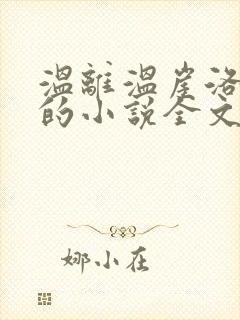 溫離溫崖洛
的小說全文
娜小在